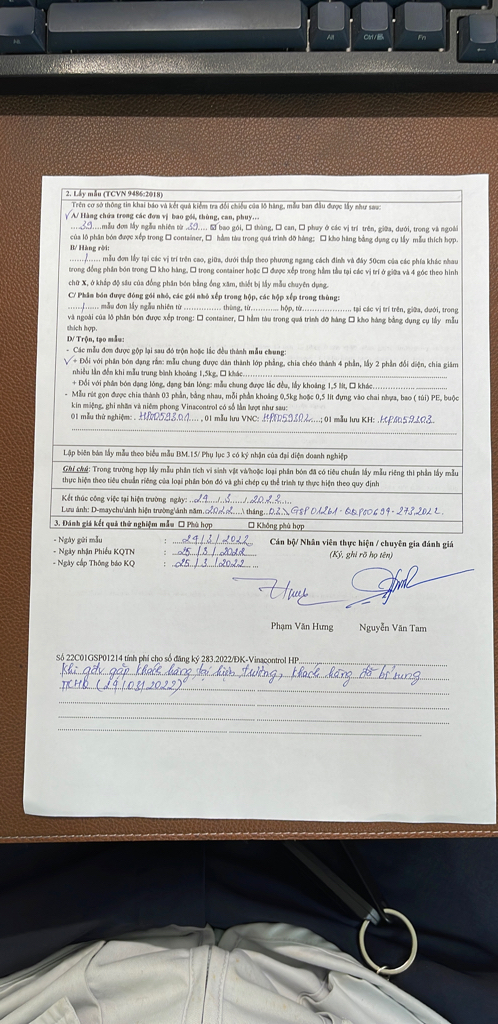 Alt
Ctrl
Fn
2. Lấy mẫu (TCVN 9486:2018)
Trên cơ sở thông tin khai báo và kết quả kiểm tra đối chiếu của lô hàng, mẫu ban đầu được lấy như sau:
A/ Hàng chứa trong các đơn vị bao gói, thùng, can, phuy...
....39....mẫu đơn lấy ngẫu nhiên từ ..39.... ☑ bao gói, ☐ thùng, ☐ can, ☐ phuy ở các vị trí trên, giữa, dưới, trong và ngoài
của lô phân bón được xếp trong ☐ container, ☐ hầm tàu trong quá trình dỡ hàng; ☐ kho hàng bằng dụng cụ lấy mẫu thích hợp.
B/ Hàng rời:
....../...... mẫu đơn lấy tại các vị trí trên cao, giữa, dưới thấp theo phương ngang cách đỉnh và đáy 50cm của các phía khác nhau
trong đống phân bón trong ☐ kho hàng, ☐ trong container hoặc ☐ được xếp trong hầm tàu tại các vị trí ở giữa và 4 góc theo hình
chữ X, ở khắp độ sâu của đống phân bón bằng ống xăm, thiết bị lấy mẫu chuyên dụng.
C/ Phân bón được đóng gói nhỏ, các gói nhỏ xếp trong hộp, các hộp xếp trong thùng:
....../......mẫu đơn lấy ngẫu nhiên từ ..................... thùng, từ............ hộp, từ..................... tại các vị trí trên, giữa, dưới, trong
và ngoài của lô phân bón được xếp trong: ☐ container, ☐ hầm tàu trong quá trình dỡ hàng ☐ kho hàng bằng dụng cụ lấy mẫu
thích hợp.
D/ Trộn, tạo mẫu:
- Các mẫu đơn được gộp lại sau đó trộn hoặc lắc đều thành mẫu chung:
+ Đối với phân bón dạng rắn: mẫu chung được dàn thành lớp phẳng, chia chéo thành 4 phần, lấy 2 phần đối diện, chia giảm
nhiều lần đến khi mẫu trung bình khoảng 1,5kg, ☐ khác............
+ Đối với phân bón dạng lỏng, dạng bán lỏng: mẫu chung được lắc đều, lấy khoảng 1,5 lít, ☐ khác............
- Mẫu rút gọn được chia thành 03 phần, bằng nhau, mỗi phần khoảng 0,5kg hoặc 0,5 lít đựng vào chai nhựa, bao ( túi) PE, buộc
kín miệng, ghi nhãn và niêm phong Vinacontrol có số lần lượt như sau:
01 mẫu thử nghiệm: .HP0059301...., 01 mẫu lưu VNC: HP0059302....; 01 mẫu lưu KH: .HP0059303.
Lập biên bản lấy mẫu theo biểu mẫu BM.15/ Phụ lục 3 có ký nhận của đại diện doanh nghiệp
Ghi chú: Trong trường hợp lấy mẫu phân tích vi sinh vật và/hoặc loại phân bón đã có tiêu chuẩn lấy mẫu riêng thì phần lấy mẫu
thực hiện theo tiêu chuẩn riêng của loại phân bón đó và ghi chép cụ thể trình tự thực hiện theo quy định
Kết thúc công việc tại hiện trường ngày: ..24.../..3.../..2022....
Lưu ảnh: D-maychu\ảnh hiện trường\ảnh năm..2022....\ tháng...03..\
3. Đánh giá kết quả thử nghiệm mẫu ☐ Phù hợp ☐ Không phù hợp
- Ngày gửi mẫu : .....24/3/2022
- Ngày nhận Phiếu KQTN : ..25../3../2022
- Ngày cấp Thông báo KQ : ..25../3../2022
Cán bộ/ Nhân viên thực hiện / chuyên gia đánh giá
(Ký, ghi rõ họ tên)
Phạm Văn Hưng Nguyễn Văn Tam
Số 22C01GSP01214 tính phí cho số đăng ký 283.2022/ĐK-Vinacontrol HP
Khi gđv gặp khách hàng tại hiện trường, khách hàng đã bổ sung
TKHQ (24/03/2022)